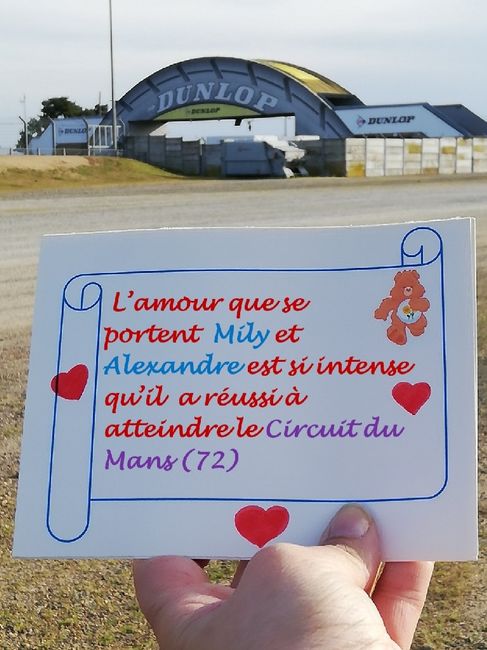 DUNLOP
DUNLOP
DUNLOP
DUNLOP
L'amour que se
portent Mily et
Alexandre est si intense
qu'il a réussi à
atteindre le Circuit du
Mans (72)